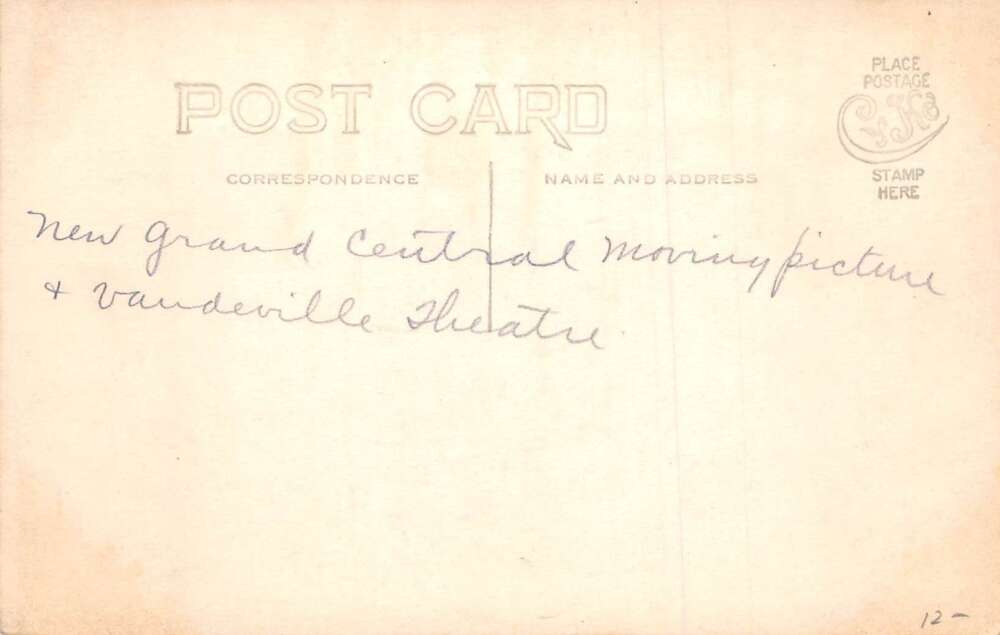 POST CARD
PLACE
POSTAGE
STAMP
HERE
CORRESPONDENCE
NAME AND ADDRESS
New Grand Central Moving picture
+ Vaudeville Theatre.
12 -